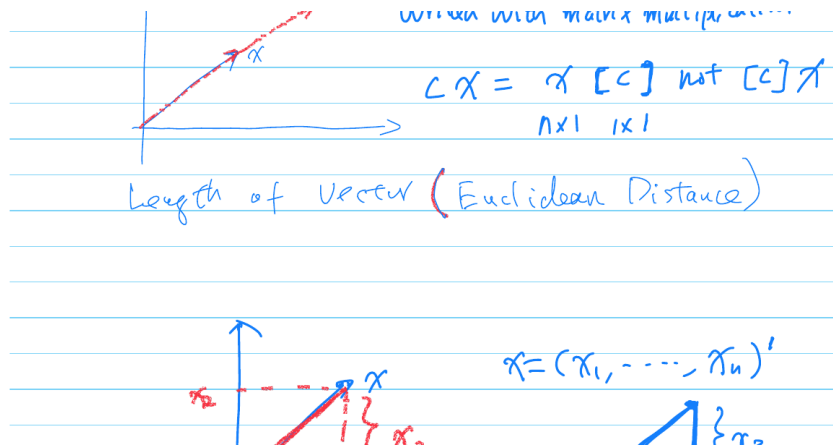 written with matrix multiplication
x
cx = x [c] not [c] x
n×1 1×1
Length of Vector (Euclidean Distance)
x = (x₁, ----, xₙ)'
x
x₂
x₂
x₂